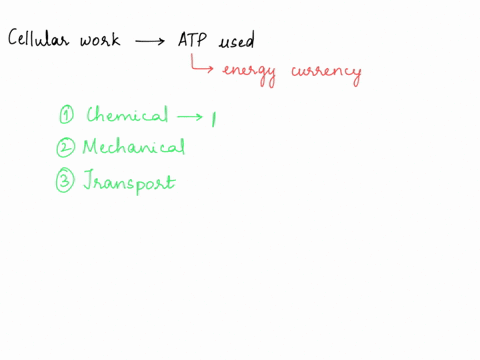 Cellular work → ATP used
↳ energy currency
① Chemical →
② Mechanical
③ Transport